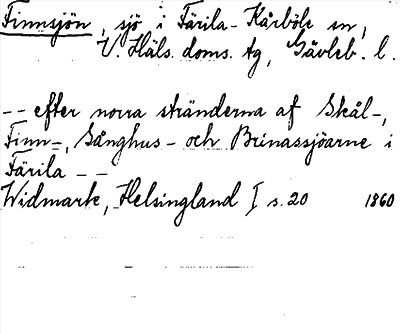 Finnsjön, sjö i Färila-Kårböle sn,
V. Häls. doms. tg, Gävleb. l.
-- efter norra stränderna af Skål-,
Finn-, Gånghus- och Brinassjöarne i
Färila --
Widmark, Helsingland I s. 20 1860